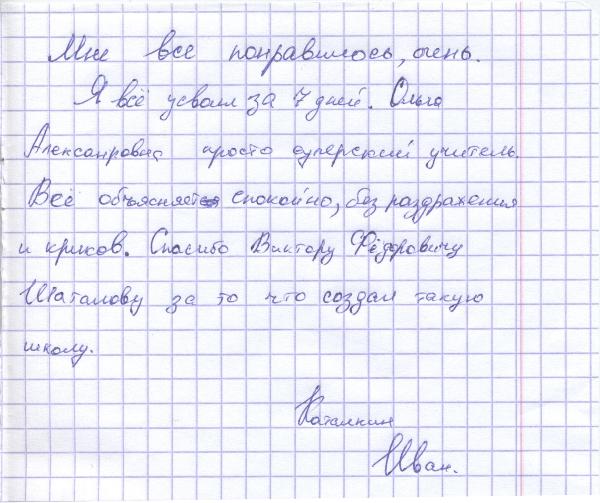 Мне все понравилось, очень.
Я всё усвоил за 7 дней. Ольга
Алексанровна просто суперский учитель.
Всё объясняет спокойно, без раздражения
и криков. Спасибо Виктору Фёдоровичу
Шаталову за то что создал такую
школу.
Каталкин
Иван.